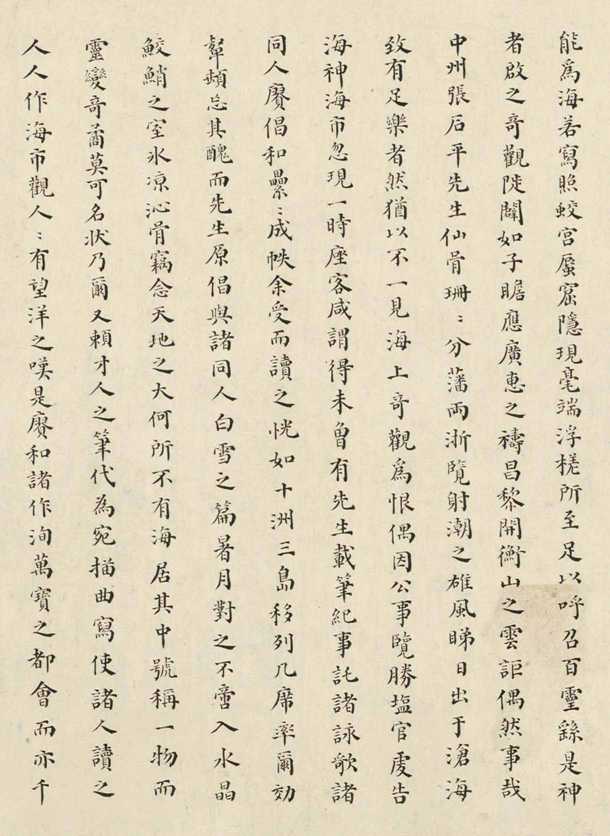 能爲海若寫照蛟宮蜃窟隱現毫端浮槎所至足以呼召百靈繇是神
者啟之奇觀陡闢如子瞻應廣惠之禱昌黎開衡山之雲詎偶然事哉
中州張后平先生仙骨珊〻分藩兩浙覽射潮之雄風睇日出于滄海
致有足樂者然猶以不一見海上奇觀爲恨偶因公事覽勝塩官虔告
海神海市忽現一時座客咸謂得未曾有先生載筆紀事託諸詠歌諸
同人賡倡和纍〻成帙余受而讀之恍如十洲三島移列几席率爾効
顰頓忘其醜而先生原倡與諸同人白雪之篇暑月對之不啻入水晶
鮫鮹之室氷凉沁骨竊念天地之大何所不有海居其中號稱一物而
靈變奇譎莫可名状乃爾又頼才人之筆代為宛描曲寫使諸人讀之
人人作海市觀人〻有望洋之嘆是賡和諸作洵萬寶之都會而亦千